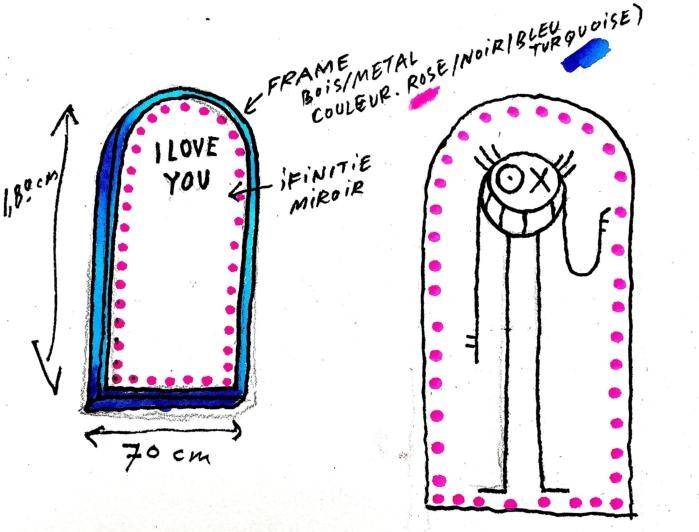 FRAME
BOIS/METAL
COULEUR. ROSE/NOIR/BLEU
TURQUOISE)
I LOVE
YOU
iFINITIE
MIROIR
1,80 cm
70 cm